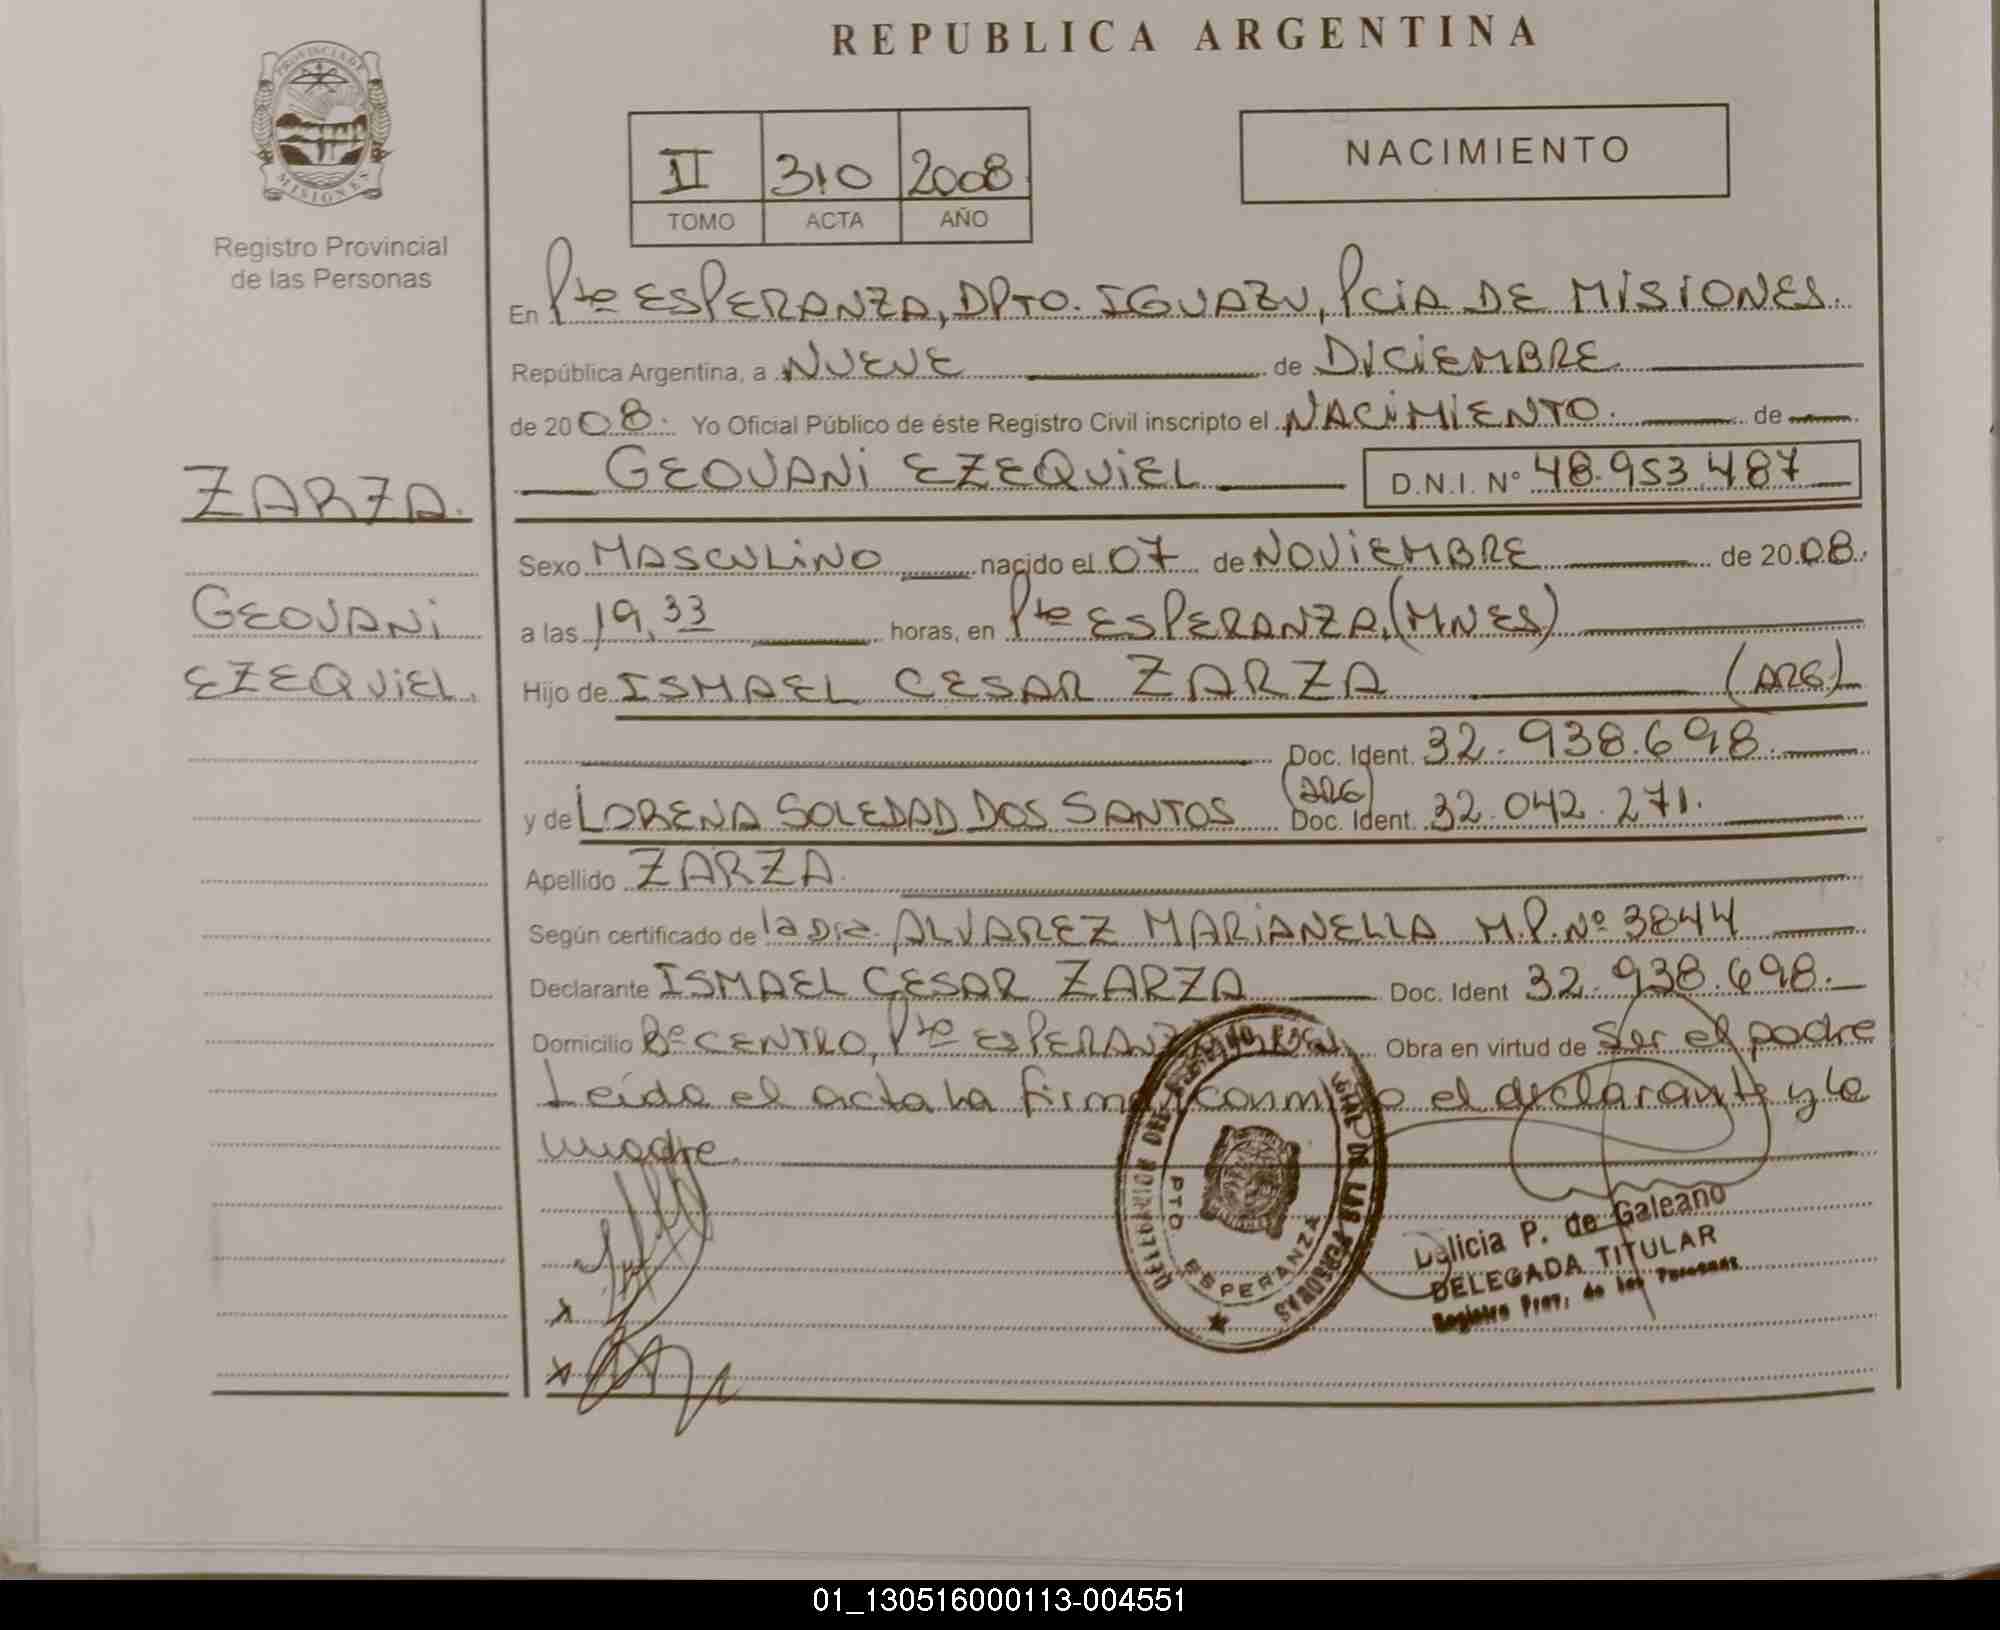 REPUBLICA ARGENTINA
PROVINCIA DE
MISIONES
Registro Provincial
de las Personas
II 310 2008
TOMO ACTA AÑO
NACIMIENTO
En Pto ESPERANZA, DPTO. IGUAZU, PCIA DE MISIONES.
República Argentina, a NUEVE de DICIEMBRE
de 2008. Yo Oficial Público de éste Registro Civil inscripto el NACIMIENTO. de
GEOVANI EZEQUIEL D.N.I. Nº 48.953.487
ZARZA.
GEOVANI
EZEQUIEL.
Sexo MASCULINO nacido el 07 de NOVIEMBRE de 2008.
a las 19,33 horas, en Pto ESPERANZA, (MNES)
Hijo de ISMAEL CESAR ZARZA (ARG)
Doc. Ident. 32.938.698.
y de LORENA SOLEDAD DOS SANTOS (ARG) Doc. Ident. 32.042.271.
Apellido ZARZA.
Según certificado de la Dra. ALVAREZ MARIANELLA M.P. Nº 3844
Declarante ISMAEL CESAR ZARZA Doc. Ident 32.938.698.
Domicilio Bº CENTRO, Pto ESPERANZA Obra en virtud de ser el padre
Leída el acta la firma conmigo el declarante y la
madre.
PTO. ESPERANZA
DE LAS PERSONAS
Delicia P. de Galeano
DELEGADA TITULAR
Registro Prov. de las Personas
01_130516000113-004551